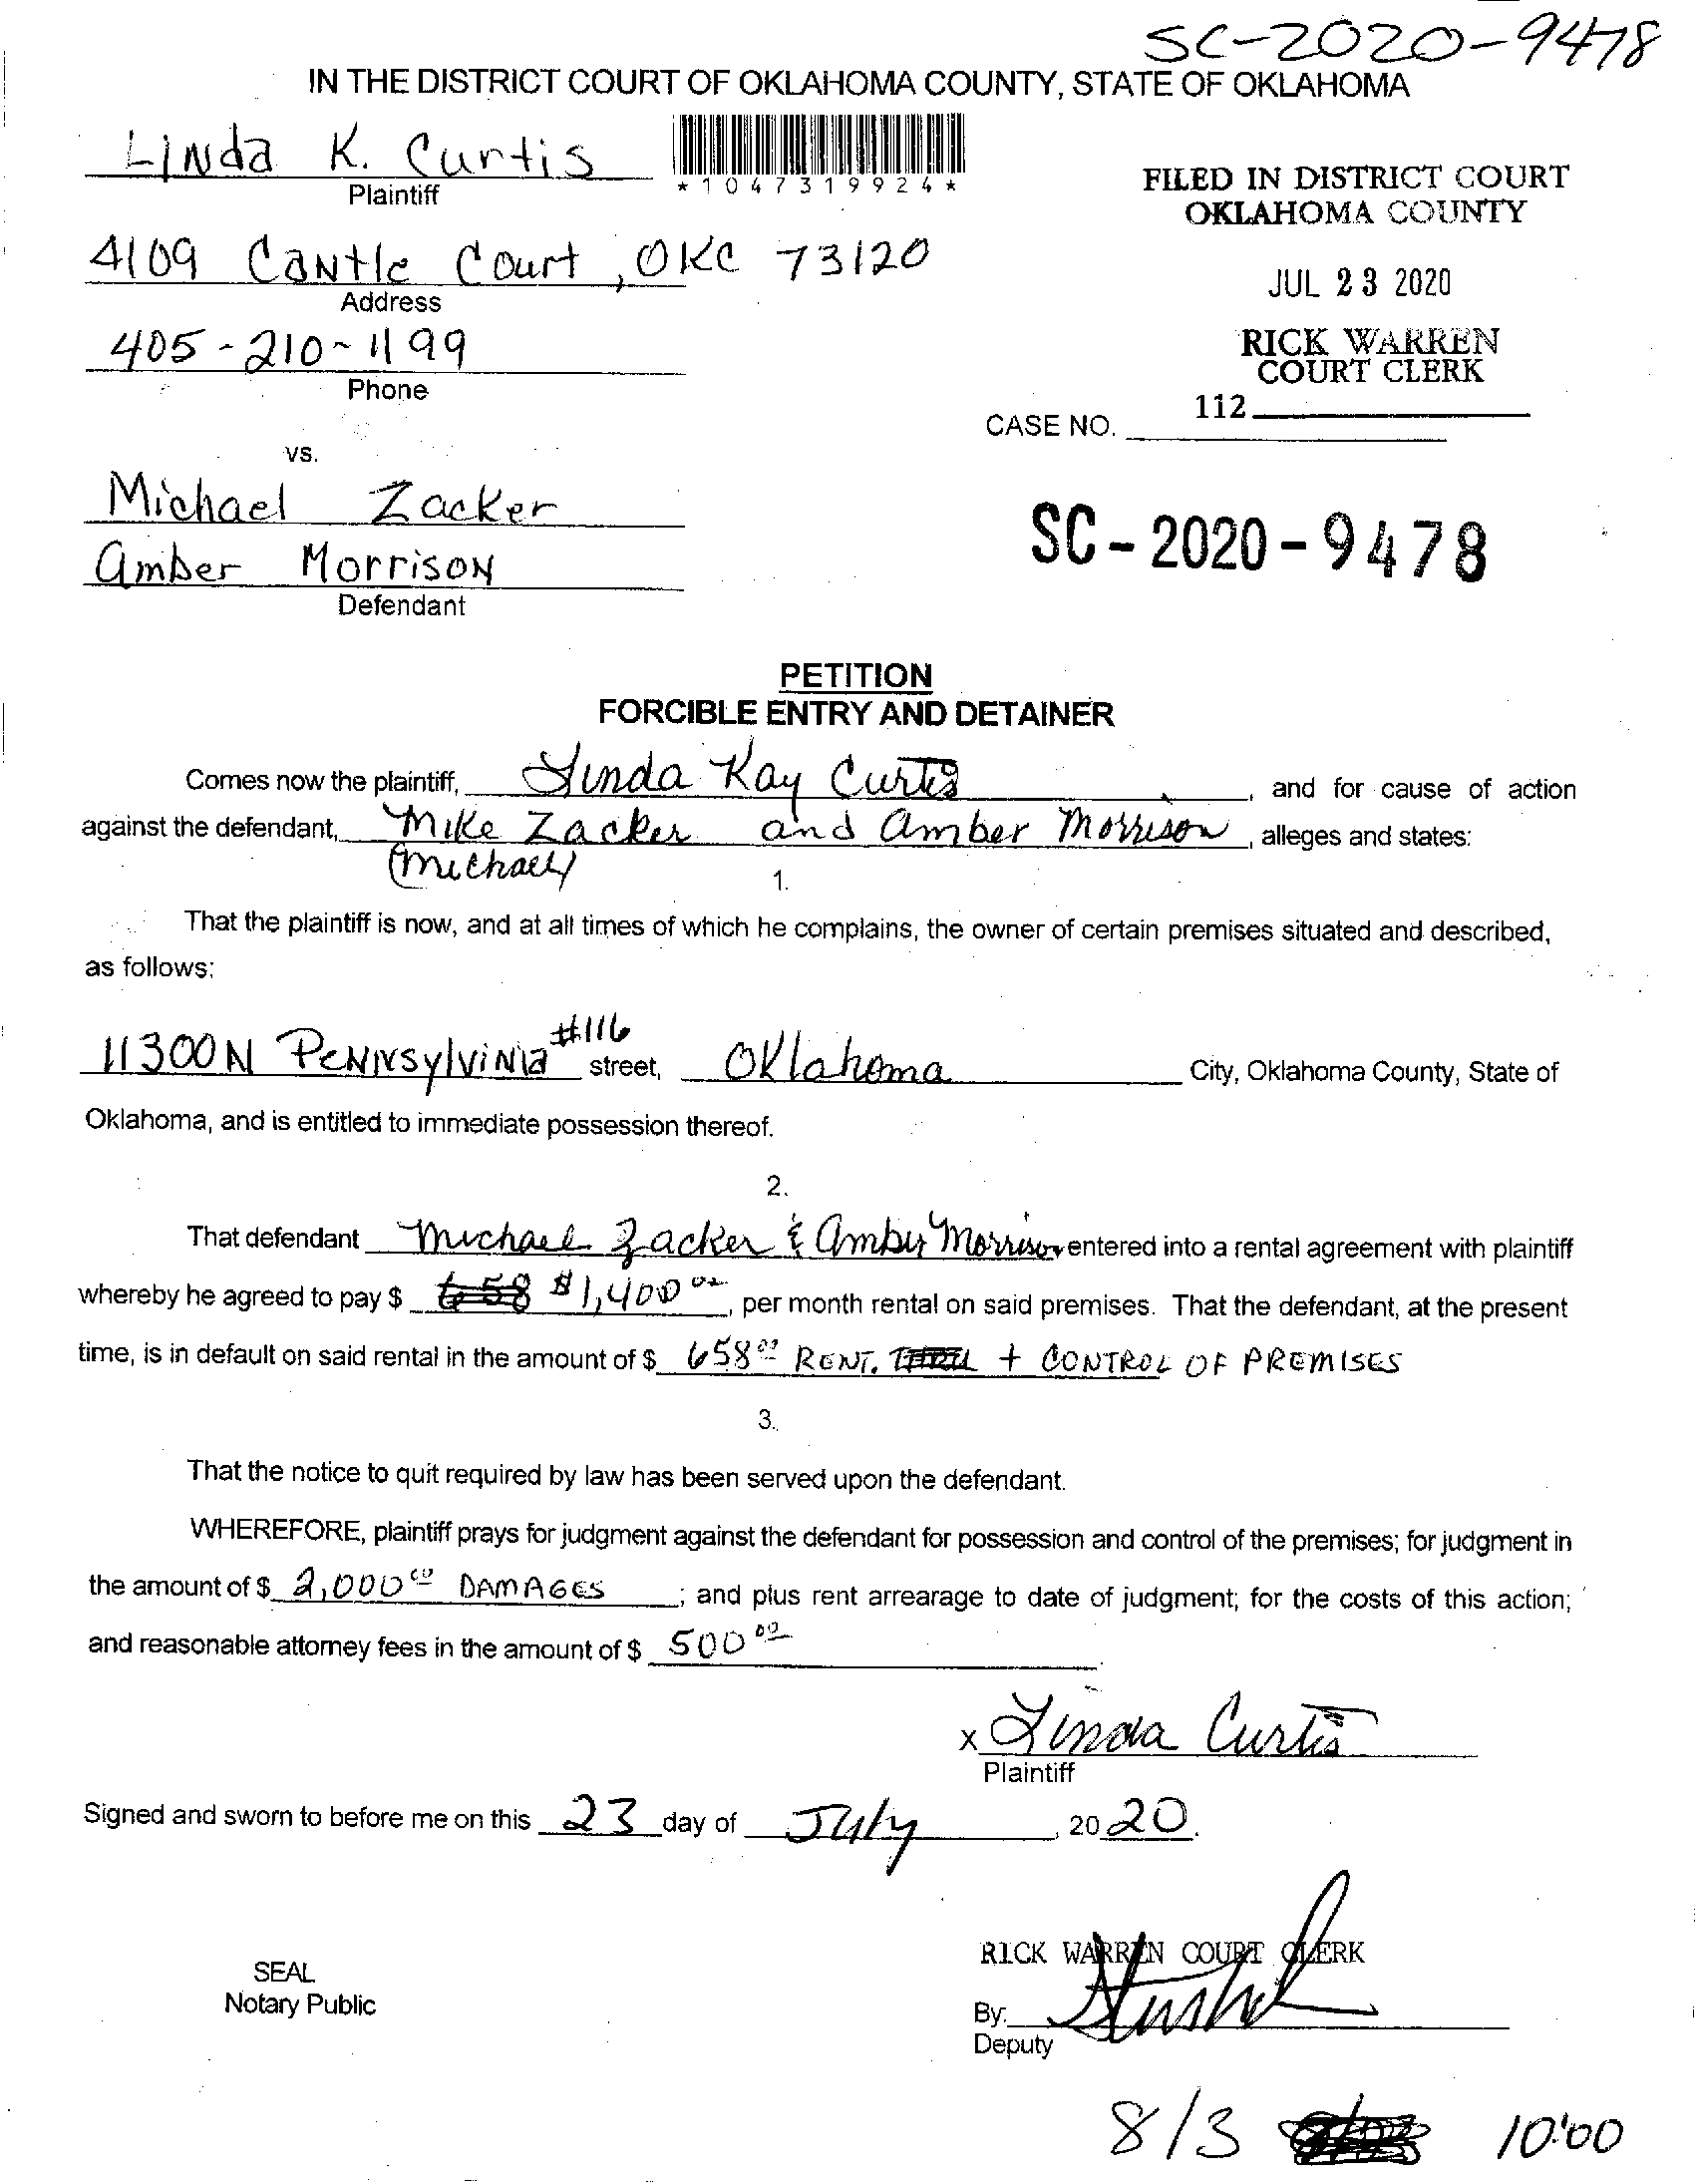 SC-2020-9478
IN THE DISTRICT COURT OF OKLAHOMA COUNTY, STATE OF OKLAHOMA
Linda K. Curtis
Plaintiff
*1047319924*
FILED IN DISTRICT COURT
OKLAHOMA COUNTY
4109 Cantle Court, OKC 73120
Address
JUL 23 2020
405-210-1199
Phone
RICK WARREN
COURT CLERK
112
CASE NO.
vs.
Michael Zacker
Amber Morrison
Defendant
SC-2020-9478
PETITION
FORCIBLE ENTRY AND DETAINER
Comes now the plaintiff, Linda Kay Curtis, and for cause of action
against the defendant, Mike Zacker and Amber Morrison, alleges and states:
(Michael)
1.
That the plaintiff is now, and at all times of which he complains, the owner of certain premises situated and described,
as follows:
11300 N Pennsylvinia #116 street, Oklahoma City, Oklahoma County, State of
Oklahoma, and is entitled to immediate possession thereof.
2.
That defendant Michael Zacker & Amber Morrison entered into a rental agreement with plaintiff
whereby he agreed to pay $ 658 $1,400 00, per month rental on said premises. That the defendant, at the present
time, is in default on said rental in the amount of $ 658 00 RENT. + CONTROL OF PREMISES
3.
That the notice to quit required by law has been served upon the defendant.
WHEREFORE, plaintiff prays for judgment against the defendant for possession and control of the premises; for judgment in
the amount of $ 2,000 00 DAMAGES; and plus rent arrearage to date of judgment; for the costs of this action;
and reasonable attorney fees in the amount of $ 500 00.
x Linda Curtis
Plaintiff
Signed and sworn to before me on this 23 day of July, 2020.
RICK WARREN COURT CLERK
SEAL
Notary Public
By:
Deputy
8/3 10:00